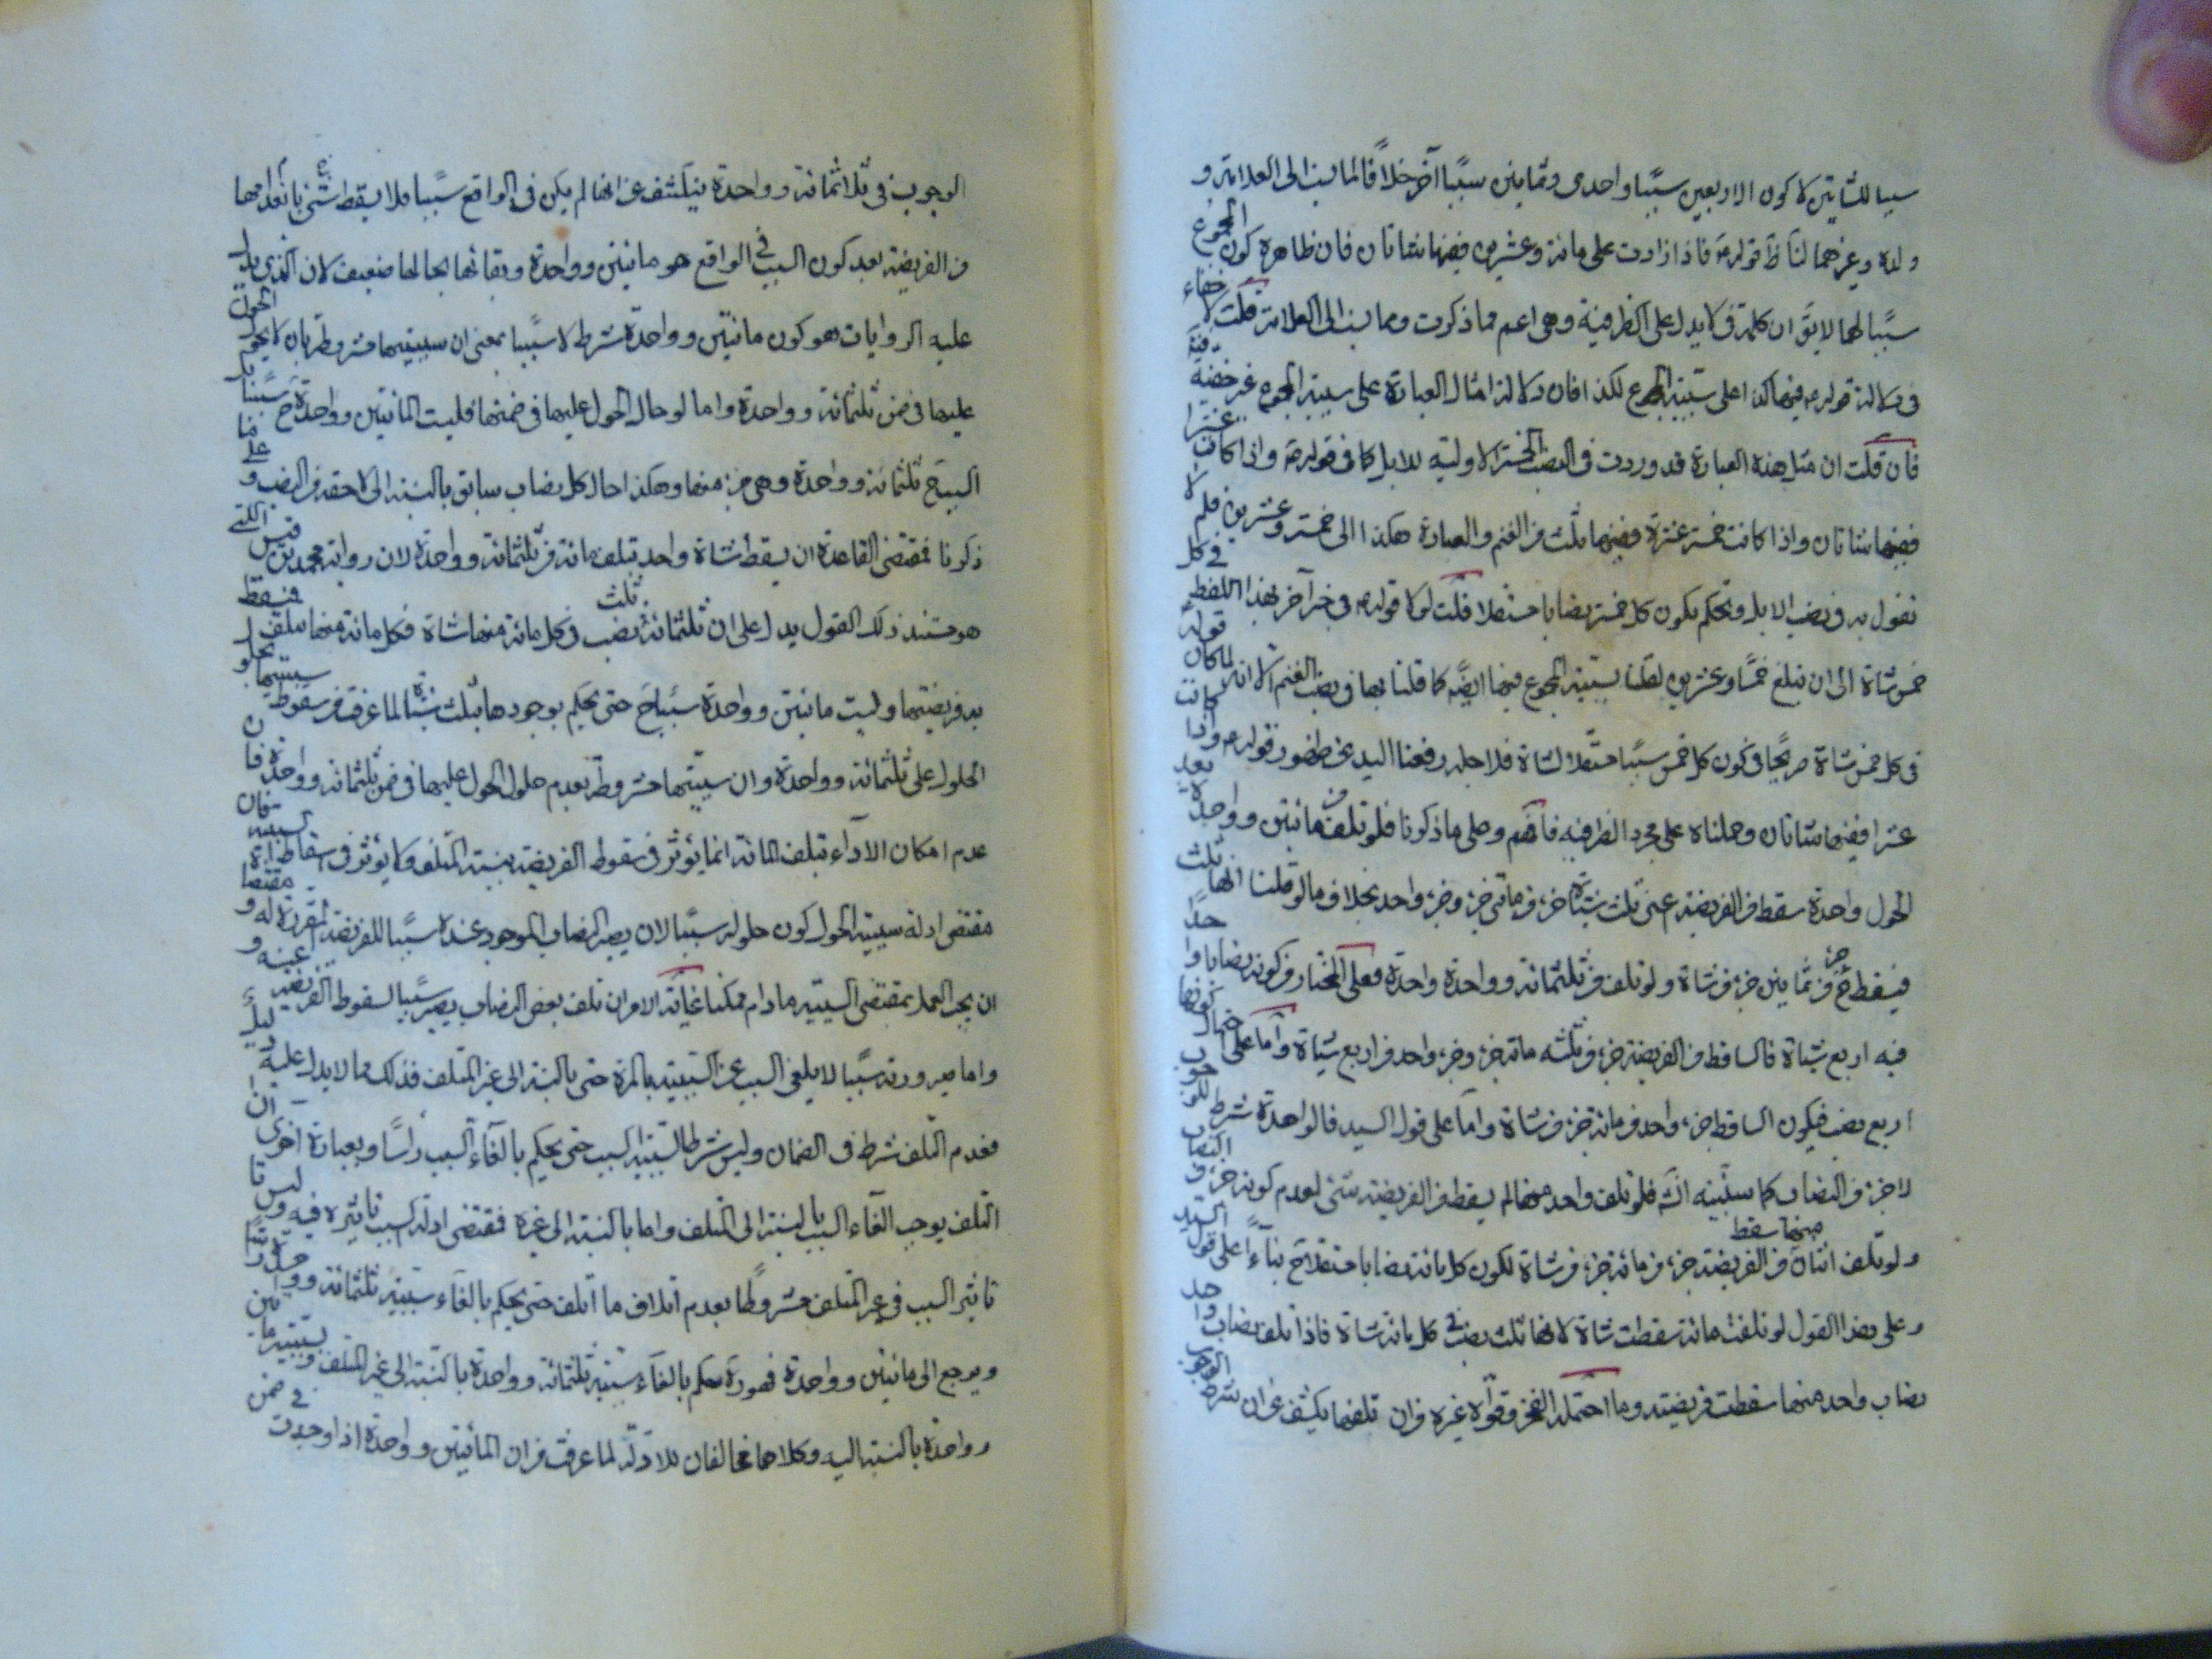 سببا للشاتين لا كون الاربعين سببا واحدى وثمانين سببا آخر خلافا لما نسب الى العلامة و
ولده وغيرهما لنا ظ قوله ع فاذا زادت على مائة وعشرين ففيها شاتان فان ظاهره كون المجموع
سببا لهما لا يق ان كلمة فى لا يدل على الظرفية وهى اعم مما ذكرت ومما نسب الى العلامة قلت لا خفاء
فى دلالة قوله ع فيها كذا على سببية المجموع لكذا فان دلالة امثال العبارة على سببية المجموع غير خفية
فان قلت ان مثل هذه العبارة قد وردت فى النصب الخمسة الاولية للابل كما فى قوله ع واذا كانت عشرا
ففيها شاتان واذا كانت خمسة عشرة ففيها ثلث من الغنم والعبارة هكذا الى خمسة وعشرين فلم لا
تقول به فى نصب الابل وتحكم بكون كل خمسة نصابا مستقلا قلت لولا قوله ع فى خبر آخر بهذا اللفظ فى كل
خمس شاة الى ان تبلغ خمسا وعشرين لقلنا بسببية المجموع فيها ايضا كما قلنا بها فى نصب الغنم الا انه لما كان قوله
فى كل خمس شاة صريحا فى كون كل خمس سببا مستقلا لشاة فلاجله رفعنا اليد عن ظهور قوله ع واذا كانت
عشرا ففيها شاتان وحملناه على مجرد الظرفية فافهم وعلى ما ذكرنا فلو تلف من مائتين وواحدة بعد
الحول واحدة سقط من الفريضة اعنى ثلث شياة جزء من مائتى جزء وجزء واحد بخلاف ما لو قلنا انها ثلث
فيسقط ح جزء من ثمانين جزء من شاة ولو تلف من ثلثمائة وواحدة واحدة فعلى المختار من كونه نصابا واحدا
فيه اربع شياة فالساقط من الفريضة جزء من ثلثمائة جزء وجزء واحد من اربع شياة واما على احتمال كونها
اربع نصب فيكون الساقط جزء واحد من مائة جزء من شاة واما على قول السيد فالواحدة شرط للوجوب
لا جزء من النصاب كما سنبينه انش فلو تلف واحد منها لم يسقط من الفريضة شئ لعدم كونه جزء من النصاب
ولو تلف اثنان منها سقط من الفريضة جزء من مائة جزء من شاة لكون كل مائة نصابا مستقلا ح بناء على قول السيد
وعلى هذا القول لو تلفت مائة سقطت شاة لانها ثلث نصب فى كل مائة شاة فاذا تلف نصاب واحد
نصاب واحد منها سقطت فريضته وما احتمله الفخر وقواه غيره من ان تلفها يكشف عن ان شرط الوجوب
الوجوب فى ثلاثمائة وواحدة ينكشف عن انها لم يكن فى الواقع سببا فلا يسقط شئ بانعدامها
من الفريضة بعد كون السبب فى الواقع هو مائتين وواحدة وبقائها بحالها ضعيف لان الذى يدل
عليه الروايات هو كون مائتين وواحدة شرط لا سببا بمعنى ان سببيتهما مشروطة بان لا يحوم الحول
عليها فى ضمن ثلثمائة وواحدة واما لو حال الحول عليها فى ضمنها فليست المائتين وواحدة ح سببا بل
السبب ح ثلثمائة وواحدة وهى جزء منها وهكذا حال كل نصاب سابق بالنسبة الى لاحقه من النصب و على ما
ذكرنا فمقتضى القاعدة ان يسقط شاة واحد بتلف مائة من ثلثمائة وواحدة لان رواية محمد بن قيس التى
هو مستند ذلك القول يدل على ان ثلثمائة ثلث نصب فى كل مائة منها شاة فكل مائة منها بتلف فيسقط
به فريضتها وليست مائتين وواحدة سببا ح حتى يحكم بوجودها بثلث شياة لما عرفت من سقوط سببيتها بحلول
الحلول على ثلثمائة وواحدة وان سببيتها مشروطة بعدم حلول الحول عليها فى ضمن ثلثمائة وواحدة فان
عدم امكان الاداء بتلف المائة انما يؤثر فى سقوط الفريضة بنسبة المتلف ولا يؤثر فى اسقاط السببية
مقتضى ادلة سببية الحول كون حلوله سببا لان يصير النصاب الموجود عنده سببا للفريضة المقررة له و مقتضا
ان يجب العمل بمقتضى السببية ما دام ممكنا غاية الامر ان تلف بعض النصاب يصير سببا لسقوط الفريضة عنه و
واما صيرورته سببا لا يلغى السبب عن السببية بالمرة حتى بالنسبة الى غير المتلف فذلك مما لا يدل عليه دليل
فعدم التلف شرط فى الضمان وليس شرطا لسببية السبب حتى يحكم بالغاء السبب رأسا وبعبارة اخرى ان
التلف يوجب الغاء السبب بالنسبة الى المتلف واما بالنسبة الى غيره فمقتضى ادلة السبب تاثيره فيه وليس
تاثير السبب فى غير المتلف مشروطا بعدم اتلاف ما اتلف حتى يحكم بالغاء سببية ثلثمائة وواحدة
ويرجع الى مائتين وواحدة فهو رة يحكم بالغاء سببية ثلثمائة وواحدة بالنسبة الى غير المتلف وبسببية مائتين
وواحدة بالنسبة اليه وكلاهما مخالفان للادلة لما عرفت من ان المائتين وواحدة اذا وجدت فى ضمن